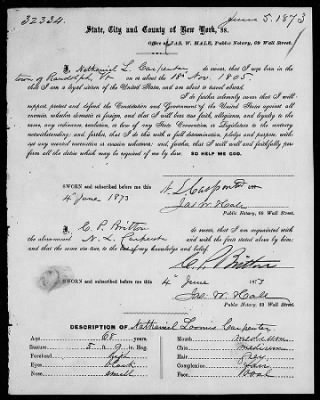 32334.
June 5. 1873
State, City and County of New York, ss.
Office of JAS. W. HALE, Public Notary, 69 Wall Street.
I, Nathaniel L. Carpenter do swear, that I was born in the
town of Randolph, Vt on or about the 18th Nov. 1805.
that I am a loyal citizen of the United States, and am about to travel abroad.
I do further solemnly swear that I will
support, protect and defend the Constitution and Government of the United States against all
enemies whether domestic or foreign, and that I will bear true faith, allegiance, and loyalty to the
same, any ordinance, resolution, or law of any State Convention or Legislature to the contrary
notwithstanding; and further, that I do this with a full determination, pledge and purpose, without
any mental reservation or evasion whatsoever; and, further, that I will well and faithfully perform
all the duties which may be required of me by law. SO HELP ME GOD.
N. L. Carpenter
SWORN and subscribed before me this
4th June 1873
Jas. W. Hale
Public Notary, 69 Wall Street.
I, C. P. Britton do swear, that I am acquainted with
the abovenamed N. L. Carpenter and with the facts stated above by him;
and that the same are true, to the best of my knowledge and belief.
C. P. Britton
SWORN and subscribed before me this
4 June 1873
Jas. W. Hale
Public Notary, 69 Wall Street.
DESCRIPTION OF Nathaniel Loomis Carpenter
Age 68 years. Mouth medium
Stature 5 ft 9 in. Eng. Chin medium
Forehead high Hair Grey
Eyes black Complexion fair
Nose small Face Oval